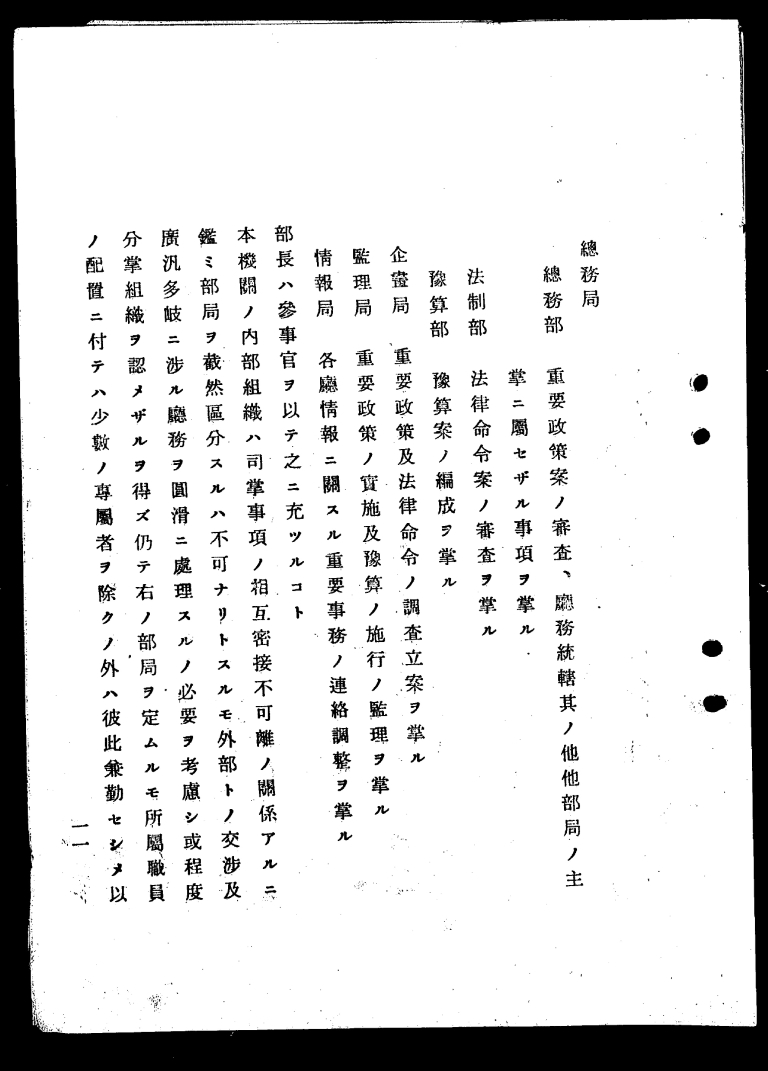 總務局
總務部　重要政策案ノ審査、廳務統轄其ノ他他部局ノ主
掌ニ屬セザル事項ヲ掌ル
法制部　法律命令案ノ審査ヲ掌ル
豫算部　豫算案ノ編成ヲ掌ル
企畫局　重要政策及法律命令ノ調査立案ヲ掌ル
監理局　重要政策ノ實施及豫算ノ施行ノ監理ヲ掌ル
情報局　各廳情報ニ關スル重要事務ノ連絡調整ヲ掌ル
部長ハ參事官ヲ以テ之ニ充ツルコト
本機關ノ內部組織ハ司掌事項ノ相互密接不可離ノ關係アルニ
鑑ミ部局ヲ截然區分スルハ不可ナリトスルモ外部トノ交涉及
廣汎多岐ニ涉ル廳務ヲ圓滑ニ處理スルノ必要ヲ考慮シ或程度
分掌組織ヲ認メザルヲ得ズ仍テ右ノ部局ヲ定ムルモ所屬職員
ノ配置ニ付テハ少數ノ專屬者ヲ除クノ外ハ彼此兼勤セシメ以
一一